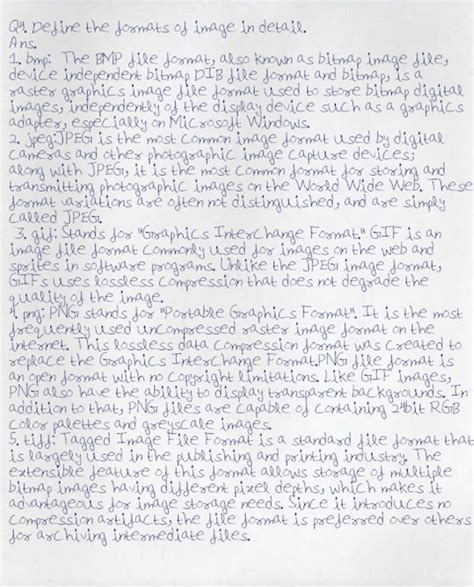 Q4. Define the formats of image in detail.
Ans.
1. bmp: The BMP file format, also known as bitmap image file,
device independent bitmap DIB file format and bitmap, is a
raster graphics image file format used to store bitmap digital
images, independently of the display device such as a graphics
adapter, especially on Microsoft Windows.
2. jpeg:JPEG is the most common image format used by digital
cameras and other photographic image capture devices;
along with JPEG, it is the most common format for storing and
transmitting photographic images on the World Wide Web. These
format variations are often not distinguished, and are simply
called JPEG.
3. gif: Stands for "Graphics Interchange Format." GIF is an
image file format commonly used for images on the web and
sprites in software programs. Unlike the JPEG image format,
GIFs uses lossless compression that does not degrade the
quality of the image.
4. png: PNG stands for "Portable Graphics Format". It is the most
frequently used uncompressed raster image format on the
internet. This lossless data compression format was created to
replace the Graphics Interchange Format.PNG file format is
an open format with no copyright limitations. Like GIF images,
PNG also have the ability to display transparent backgrounds. In
addition to that, PNG files are capable of containing 24bit RGB
color palettes and greyscale images.
5. tiff: Tagged Image File Format is a standard file format that
is largely used in the publishing and printing industry. The
extensible feature of this format allows storage of multiple
bitmap images having different pixel depths, which makes it
advantageous for image storage needs. Since it introduces no
compression artifacts, the file format is preferred over others
for archiving intermediate files.